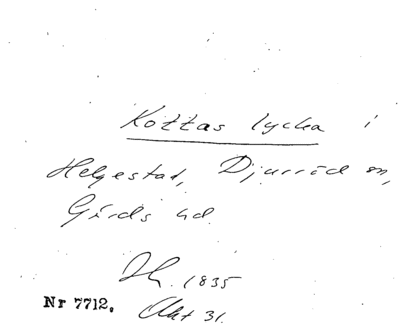 Kottas lycka i
Helgestad, Djurröd sn,
Gärds hd.
Sk. 1835
Nr 7712. Akt 31.